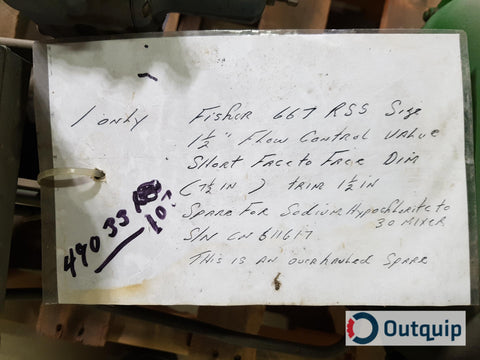 1 only
Fisher 667 RSS Size
1½" Flow Control Valve
Short Face to Face Dim
(7½ in ) trim 1½ in
Spare For Sodium Hypochlorite to
30 mixer
S/N CN 611617
This is an overhauled Spare
49033
Outquip